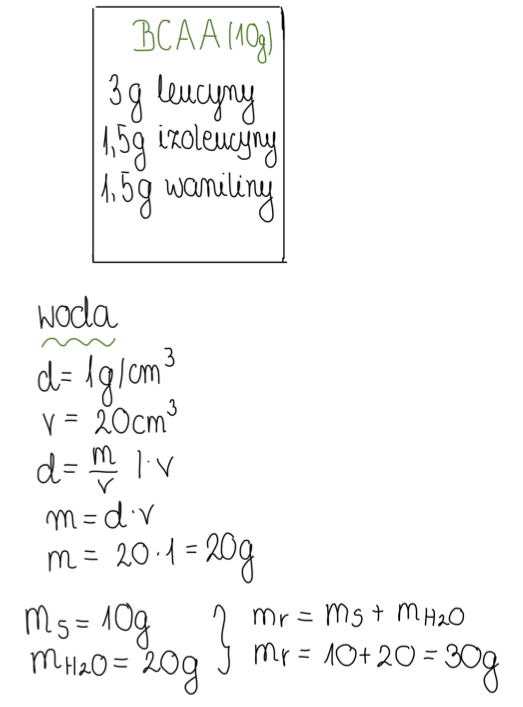 BCAA (10g)
3g leucyny
1,5g izoleucyny
1,5g waniliny
woda
d= 1g/cm³
v = 20cm³
d= m/v |·v
m=d·v
m= 20·1=20g
ms=10g
mH2O= 20g
mr = ms + mH2O
mr = 10+20 = 30g